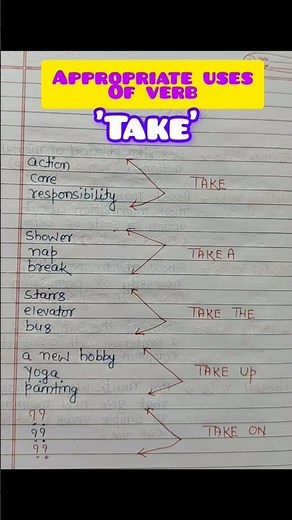 APPROPRIATE USES
OF VERB
'TAKE'
action
care
responsibility
TAKE
Shower
nap
break
TAKE A
stairs
elevator
bus
TAKE THE
a new hobby
yoga
painting
TAKE UP
??
??
??
TAKE ON